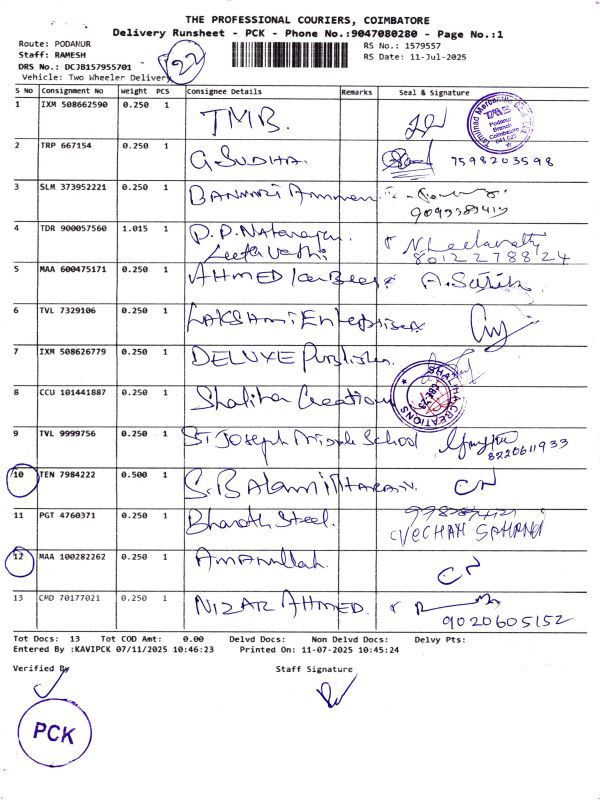 THE PROFESSIONAL COURIERS, COIMBATORE
Delivery Runsheet - PCK - Phone No.:9047080280 - Page No.:1
Route: PODANUR
RS No.: 1579557
Staff: RAMESH
RS Date: 11-Jul-2025
DRS No.: DCJB157955701
Vehicle: Two Wheeler Delivery
22
S No Consignment No Weight PCS Consignee Details Remarks Seal & Signature
1 IXM 508662590 0.250 1 TMB.
TMB Podanur Branch Coimbatore 641 023
2 TRP 667154 0.250 1 G. SUDHA. 7598203598
3 SLM 373952221 0.250 1 BANMARI Amman
4 TDR 900057560 1.015 1 P.P. Natarajan. N. Leelavathy
Leelavathi 8012278824
5 MAA 600475171 0.250 1 AHMED Ice A. Satish
6 TVL 7329106 0.250 1 LAKSHMI Enterprises
7 IXM 508626779 0.250 1 DELUXE Publisher.
8 CCU 101441887 0.250 1 Shaliha Creations
SHALIHA CREATIONS CBE-23
9 TVL 9999756 0.250 1 ST JOSEPH Middle School
3220611933
10 TEN 7984222 0.500 1 S. BALAMITHARAN. CN
11 PGT 4760371 0.250 1 Bharath Steel.
VECHAH SAHANI
12 MAA 100282262 0.250 1 Amanullah. CN
13 CMD 70177021 0.250 1 NIZAR AHMED.
9020605152
Tot Docs: 13 Tot COD Amt: 0.00 Delvd Docs: Non Delvd Docs: Delvy Pts:
Entered By :KAVIPCK 07/11/2025 10:46:23 Printed On: 11-07-2025 10:45:24
Verified By Staff Signature
PCK